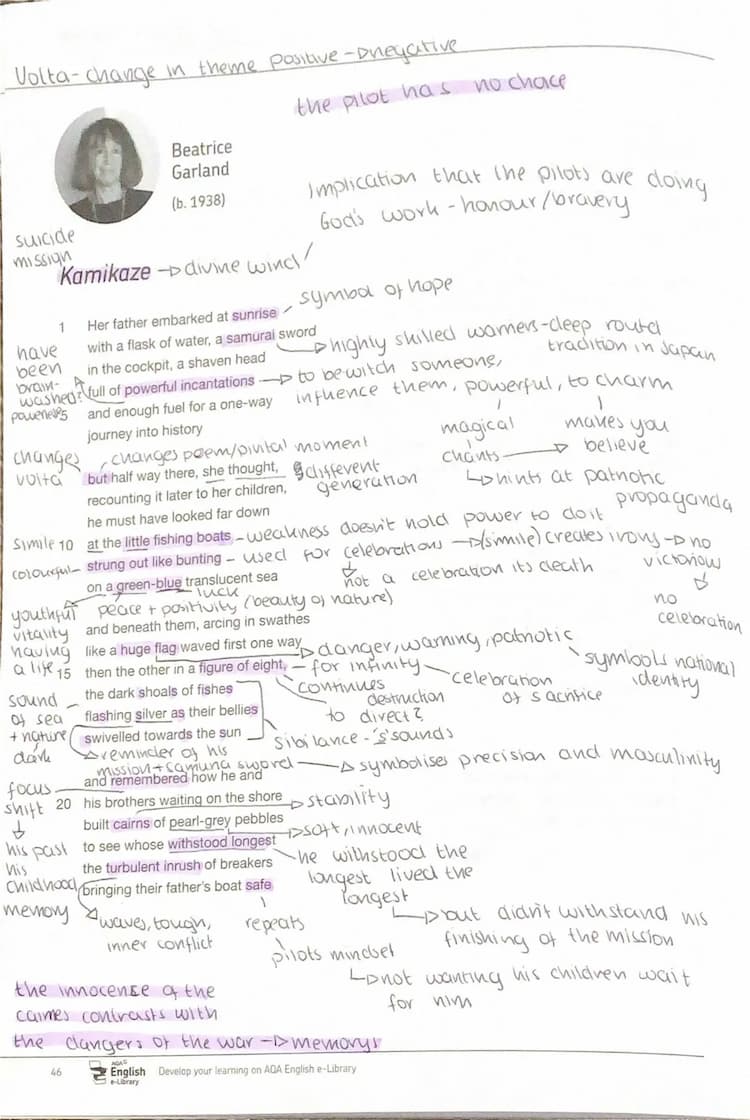 Volta - change in theme positive -> negative
the pilot has no choice
Beatrice
Garland
(b. 1938)
Implication that the pilots are doing
God's work - honour/bravery
suicide
mission
Kamikaze -> divine wind
symbol of hope
1 Her father embarked at sunrise
with a flask of water, a samurai sword
highly skilled warriers - deep routed
tradition in Japan
in the cockpit, a shaven head
have
been
brain-
washed?
powerless
full of powerful incantations -> to bewitch someone,
influence them, powerful, to charm
5 and enough fuel for a one-way
journey into history
magical
chants
makes you
believe
hints at patriotic
propaganda
changes
volta
changes poem/pivital moment
but half way there, she thought,
different
generation
recounting it later to her children,
he must have looked far down
simile 10 at the little fishing boats - weakness doesn't hold power to do it
colourful - strung out like bunting - used for celebrations -> (simile) creates irony -> no
victoriow
no
celebration
not a celebration its death
on a green-blue translucent sea
luck
peace + positivity (beauty of nature)
youthful
vitality
having
a life
and beneath them, arcing in swathes
like a huge flag waved first one way
danger, warning, patriotic
symbols national
identity
15 then the other in a figure of eight, - for infinity
celebration
of sacrifice
continues
destruction
to direct?
the dark shoals of fishes
flashing silver as their bellies
swivelled towards the sun
sibilance - 's' sounds
sound
of sea
+ nature
dark
reminder of his
mission + samurai sword -> symbolises precision and masculinity
and remembered how he and
focus
shift
his past
his
childhood
memory
20 his brothers waiting on the shore
stability
built cairns of pearl-grey pebbles
soft, innocent
to see whose withstood longest
he withstood the
longest lived the
longest
but didn't withstand his
finishing of the mission
the turbulent inrush of breakers
bringing their father's boat safe
waves, tough,
inner conflict
repeats
pilots mindset
not wanting his children wait
for him
the innocence of the
cairnes contrasts with
the dangers of the war -> memorys
46
AQA
English
e-Library
Develop your learning on AQA English e-Library